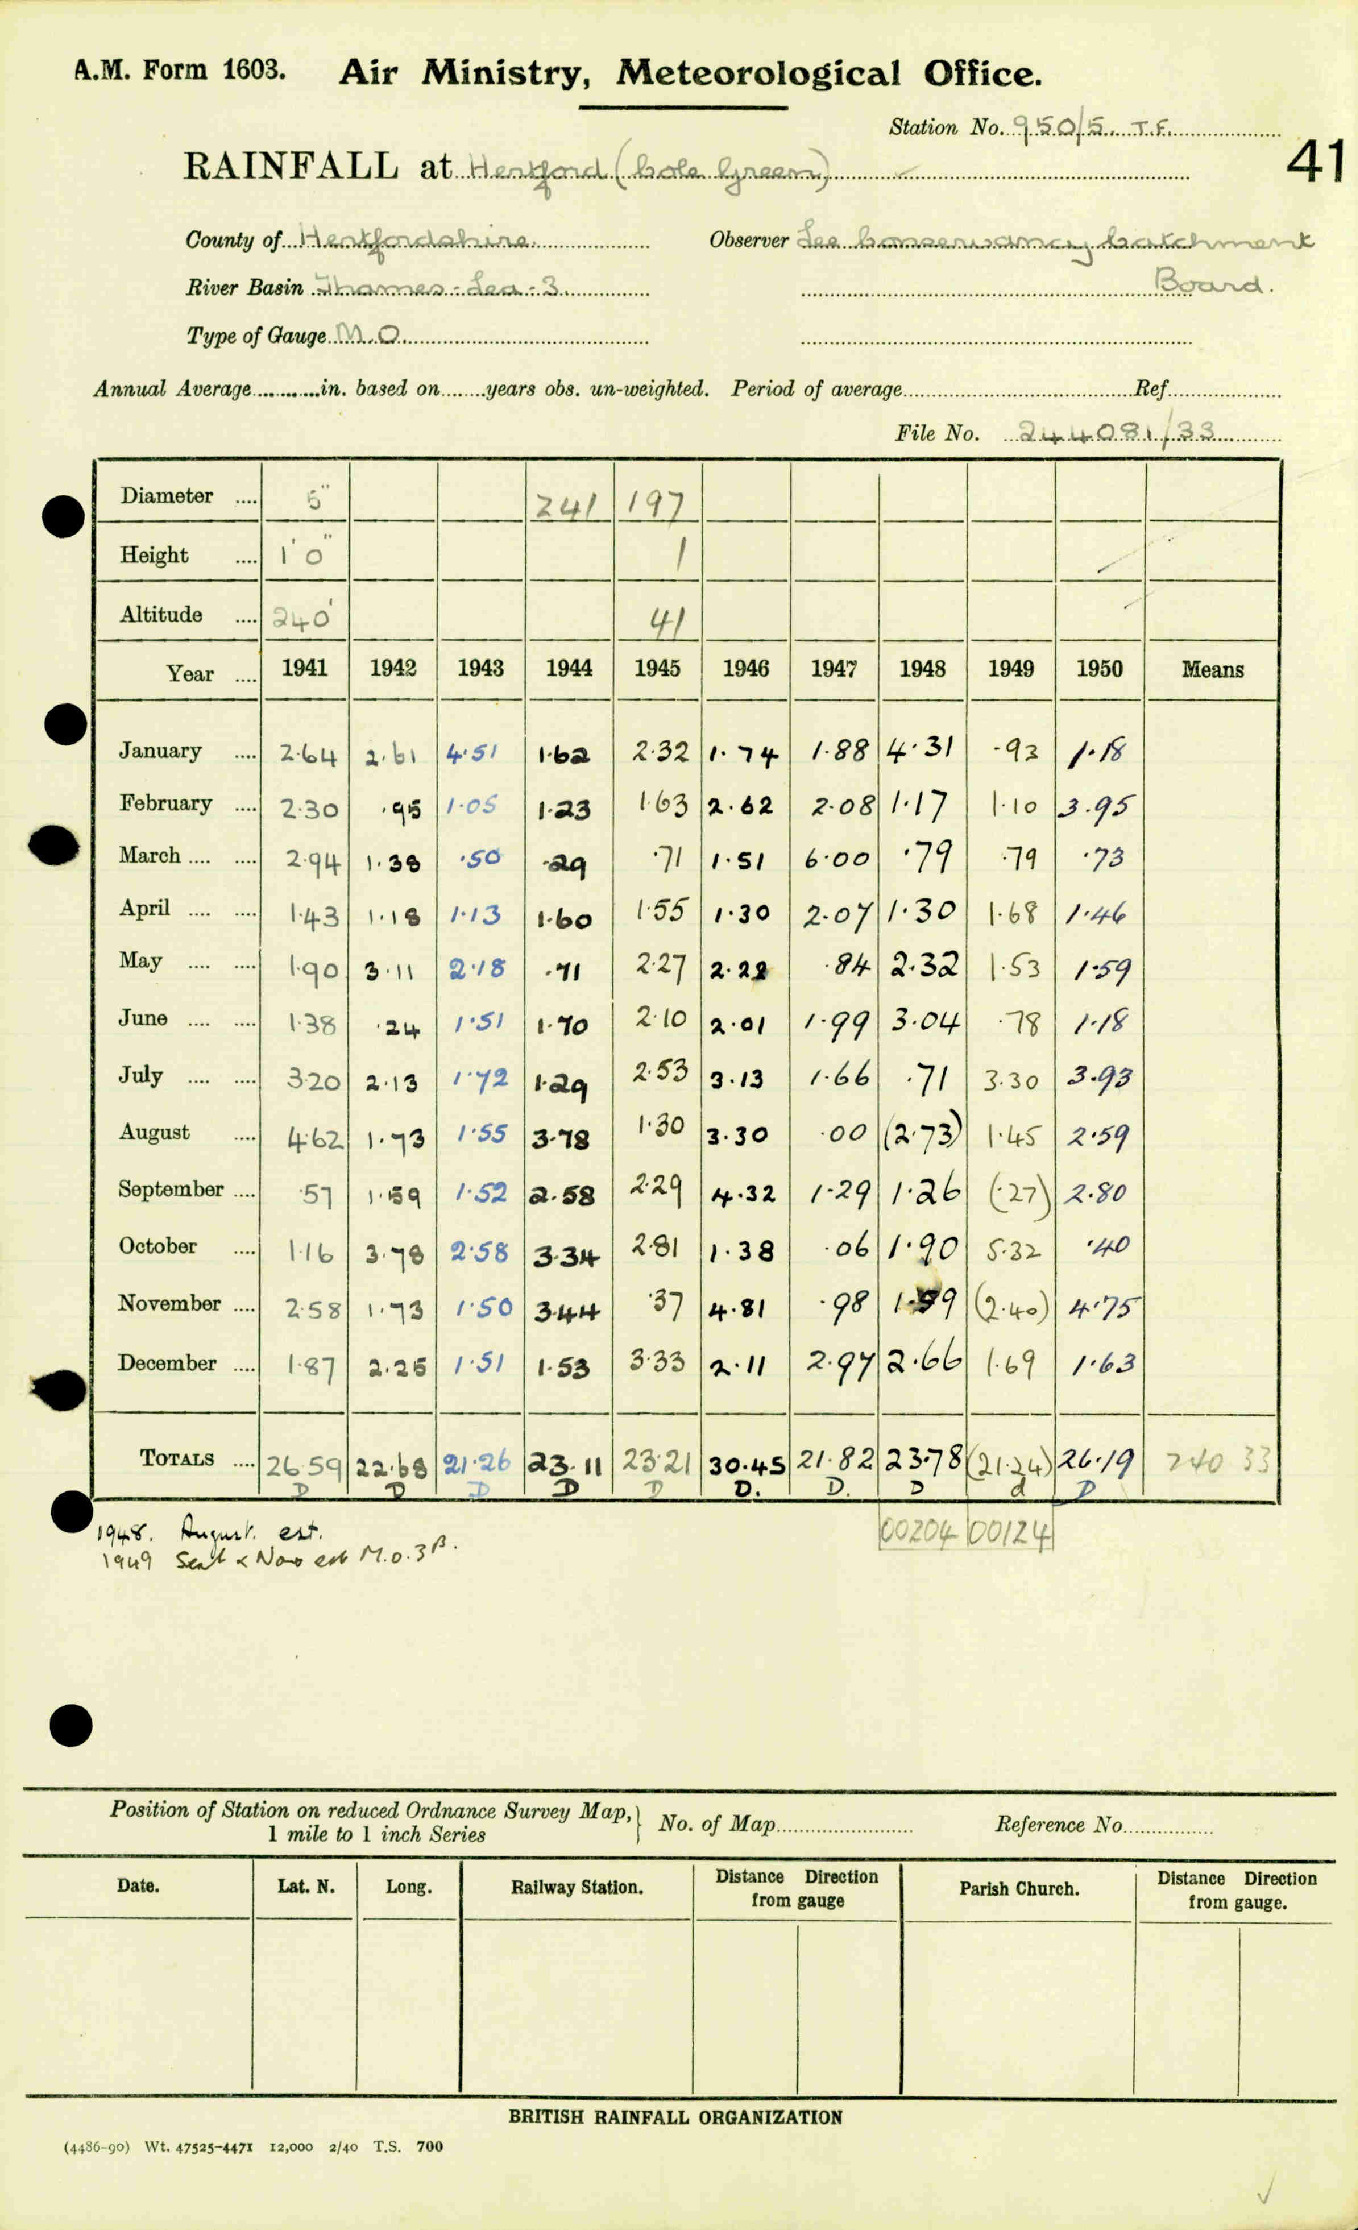 A.M. Form 1603. Air Ministry, Meteorological Office.
Station No. 950/5. T.F.
41
RAINFALL at Hertford (Cole Green)
County of Hertfordshire. Observer Lee Conservancy Catchment
River Basin Thames-Lea-3 Board.
Type of Gauge M.O
Annual Average in. based on years obs. un-weighted. Period of average Ref
File No. 244081/33
Diameter .... 5" 241 197
Height .... 1'0" 1
Altitude .... 240' 41
Year .... 1941 1942 1943 1944 1945 1946 1947 1948 1949 1950 Means
January .... 2.64 2.61 4.51 1.62 2.32 1.74 1.88 4.31 .93 1.18
February .... 2.30 .95 1.05 1.23 1.63 2.62 2.08 1.17 1.10 3.95
March .... .... 2.94 1.38 .50 .29 .71 1.51 6.00 .79 .79 .73
April .... .... 1.43 1.18 1.13 1.60 1.55 1.30 2.07 1.30 1.68 1.46
May .... .... 1.90 3.11 2.18 .71 2.27 2.22 .84 2.32 1.53 1.59
June .... .... 1.38 .24 1.51 1.70 2.10 2.01 1.99 3.04 .78 1.18
July .... .... 3.20 2.13 1.72 1.29 2.53 3.13 1.66 .71 3.30 3.93
August .... 4.62 1.73 1.55 3.78 1.30 3.30 .00 (2.73) 1.45 2.59
September .... .57 1.59 1.52 2.58 2.29 4.32 1.29 1.26 (.27) 2.80
October .... 1.16 3.78 2.58 3.34 2.81 1.38 .06 1.90 5.32 .40
November .... 2.58 1.73 1.50 3.44 .37 4.81 .98 1.59 (2.40) 4.75
December .... 1.87 2.25 1.51 1.53 3.33 2.11 2.97 2.66 1.69 1.63
TOTALS .... 26.59 22.68 21.26 23.11 23.21 30.45 21.82 23.78 (21.24) 26.19 240 33
D D D D D D. D. D d D
00204 00124
1948. August. est.
1949 Sept & Nov est M.O.3B.
Position of Station on reduced Ordnance Survey Map, } No. of Map Reference No
1 mile to 1 inch Series
Date. Lat. N. Long. Railway Station. Distance Direction from gauge Parish Church. Distance Direction from gauge.
BRITISH RAINFALL ORGANIZATION
(4486-90) Wt. 47525-4471 12,000 2/40 T.S. 700